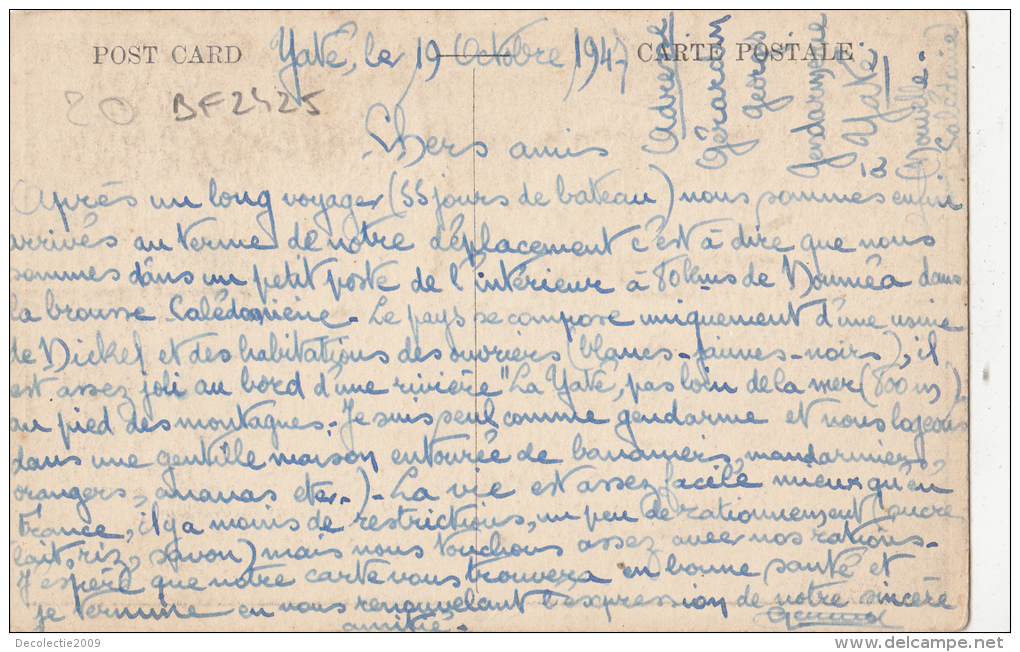 POST CARD
CARTE POSTALE
Yaté, le 19 Octobre 1947
20 BF2425
Adresse
Gérardin
Georges
Gendarmerie
Yaté
(Nouvelle
Calédonie)
Chers amis
Après un long voyage (55 jours de bateau) nous sommes enfin
arrivés au terme de notre déplacement c'est à dire que nous
sommes dans un petit poste de l'intérieur à 80 kms de Nouméa dans
la brousse Calédonienne. Le pays se compose uniquement d'une usine
de Nickel et des habitations des ouvriers (blancs-jaunes-noirs), il
est assez joli au bord d'une rivière "La Yaté, pas loin de la mer (800 m)
au pied des montagnes. Je suis seul comme gendarme et nous logeons
dans une gentille maison entourée de bananiers, mandariniers,
orangers, ananas etc.) - La vie est assez facile mieux qu'en
France, il y a moins de restrictions, un peu de rationnement (sucre
lait, riz, savon) mais nous touchons assez avec nos rations.
J'espère que notre carte vous trouvera en bonne santé et
je termine en vous renouvelant l'expression de notre sincère
amitié.
Decolectie2009
www.delcampe.net